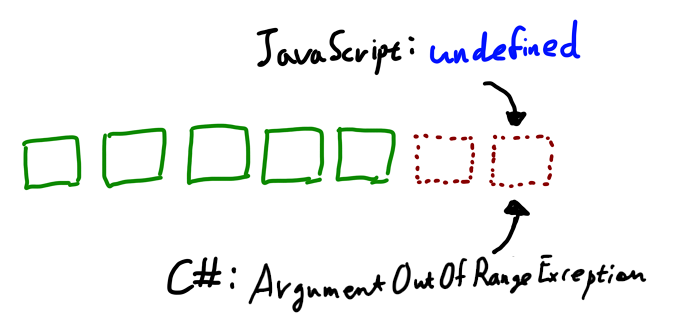 JavaScript: undefined
C#: ArgumentOutOfRangeException